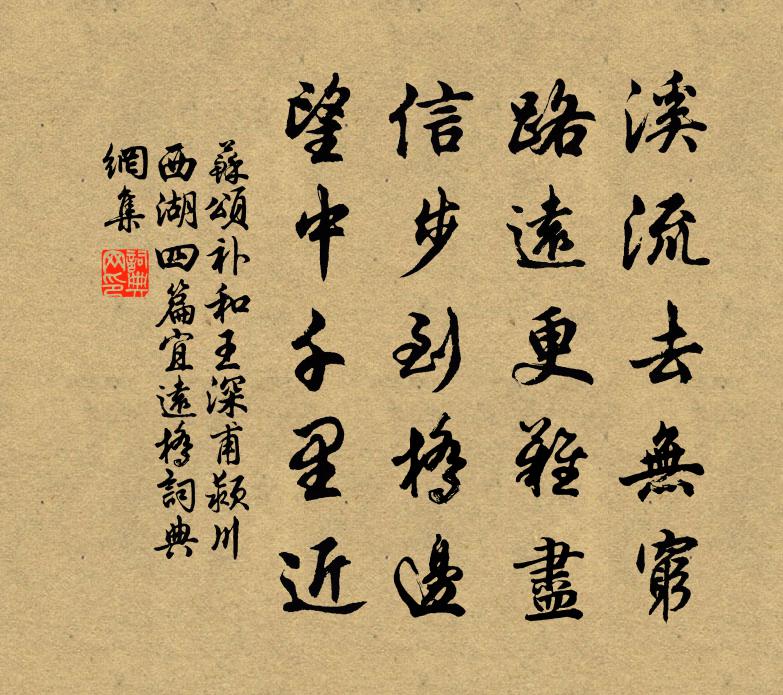 溪流去無窮
路遠更難盡
信步到橋邊
望中千里近
蘇頌补和王深甫颍川
西湖四篇宜遠橋詞典
網集
詞典网印